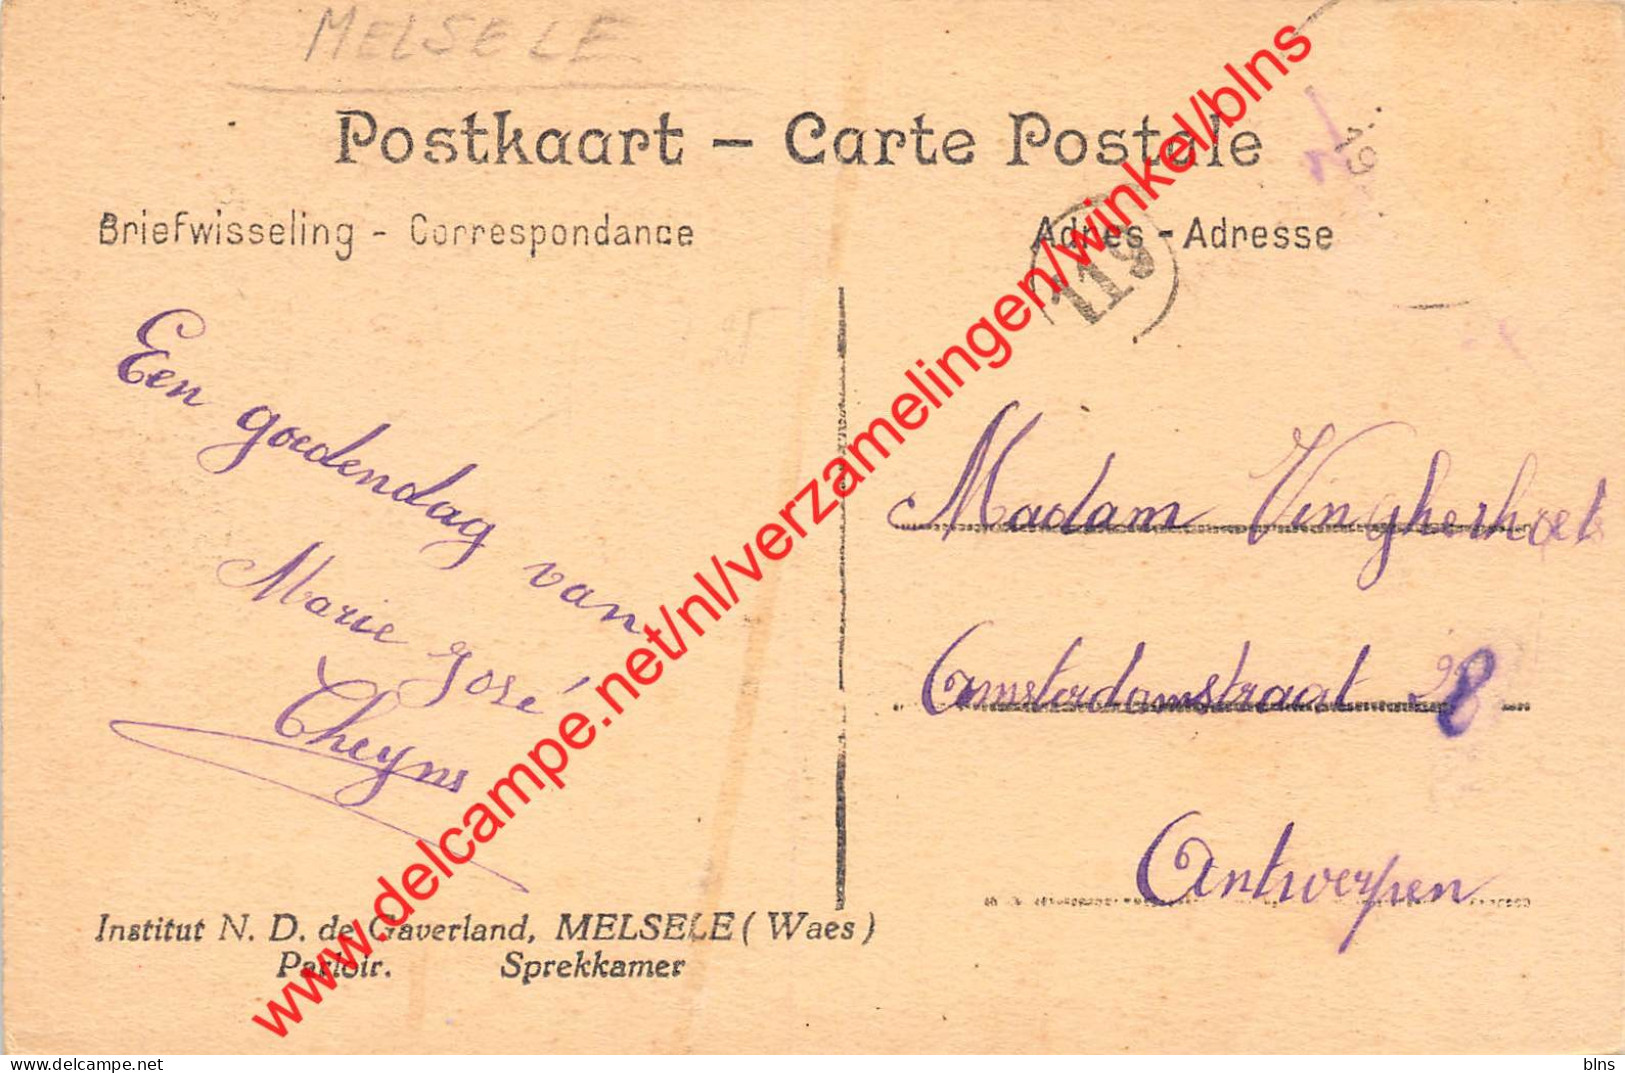 MELSELE
Postkaart – Carte Postale
Briefwisseling - Correspondance
Adres - Adresse
119
19
Een goedendag van
Marie José
Cheyns
Madam Vingherhoets
Amsterdamstraat 28
Antwerpen
Institut N. D. de Gaverland, MELSELE (Waes)
Parloir. Sprekkamer
www.delcampe.net/nl/verzamelingen/winkel/blns
Posted on Delcampe.net
blns